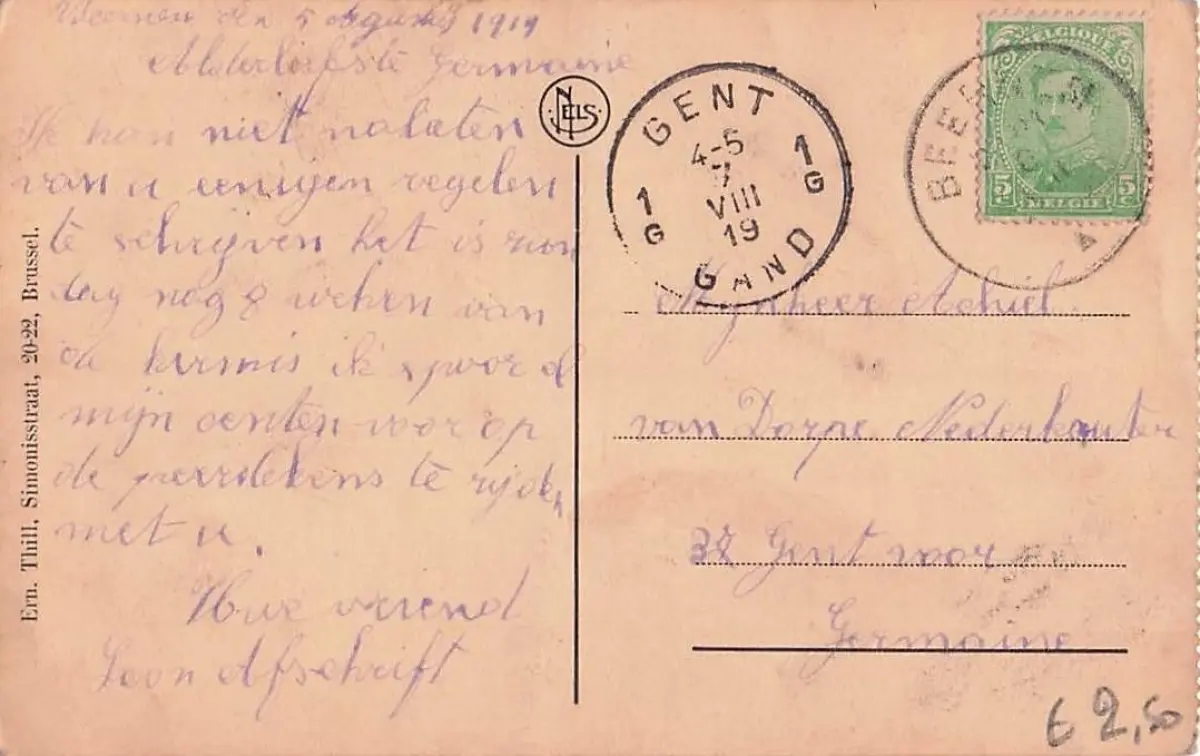 den 5 Augusty 1919
Alderliefste Germaine
Ik kan niet nalaten
van u eenigen regelen
te schrijven het is zon
dag nog 8 weken van
de kermis ik spoor
mijn centen voor op
de peerdekens te rijden
met u.
Uwe vriend
Leon Afschrift
Ern. Thill, Simonisstraat, 20-22, Brussel.
NELS
GENT
4-5
7
VIII
19
1 G
1 G
GAND
BELGIQUE
5c
5c
BELGIË
Mynheer Achiel
van Dorpe Nederkouter
Gent voor
Germaine
€ 2,50